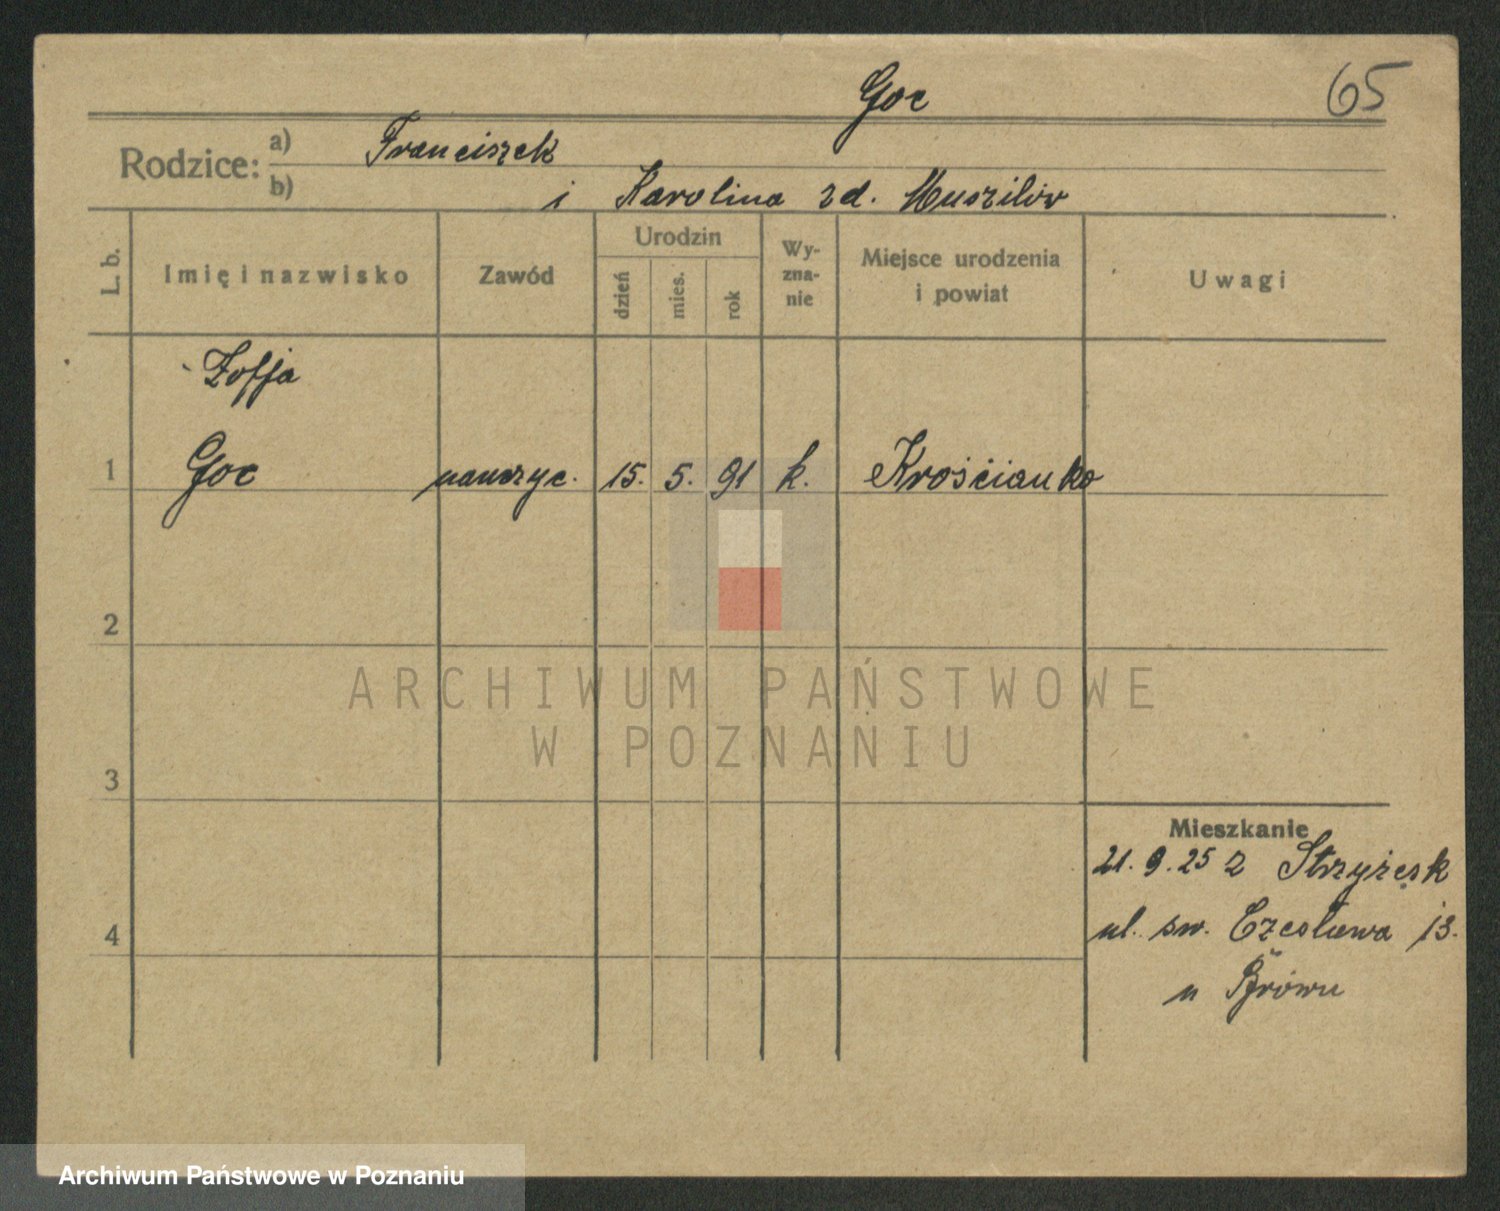 Goc 65
Rodzice: a) Franciszek
b) i Karolina zd. Muszilów
L. b. Imię i nazwisko Zawód Urodzin dzień mies. rok Wyznanie Miejsce urodzenia i powiat Uwagi
Zofja
1 Goc nauczyc. 15. 5. 91 k. Krościanko
2
ARCHIWUM PAŃSTWOWE
W POZNANIU
3
Mieszkanie
21. 9. 25 z Strzyżęsk
4 ul. św. Czesława 13.
u
Archiwum Państwowe w Poznaniu